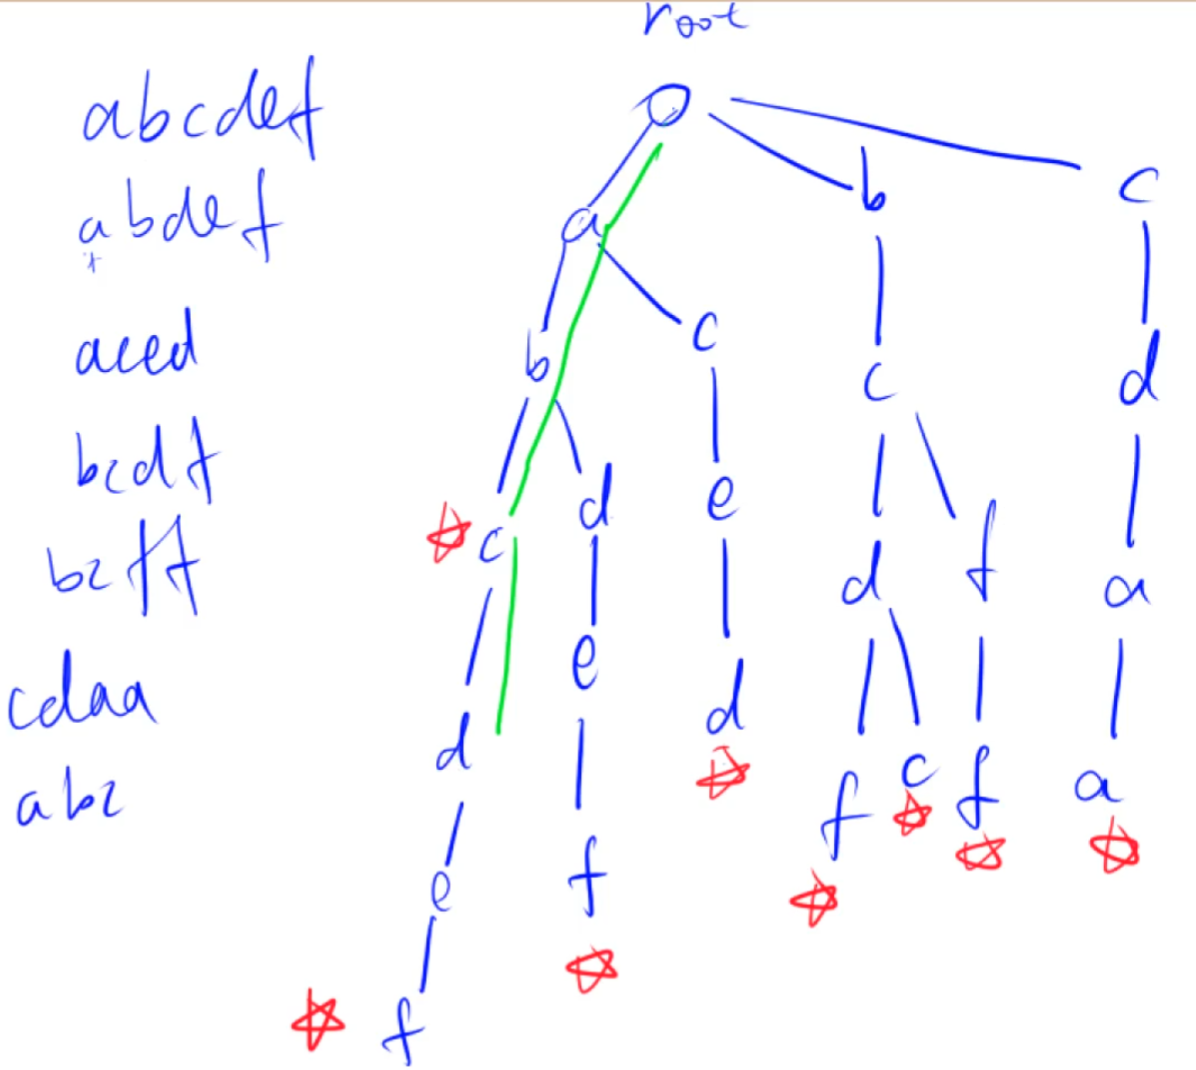 abcdef
abdef
aced
bcdf
bcff
cdaa
abc
root
a b c
b c c d
c d e d f a
d e d f c f a
e f
f